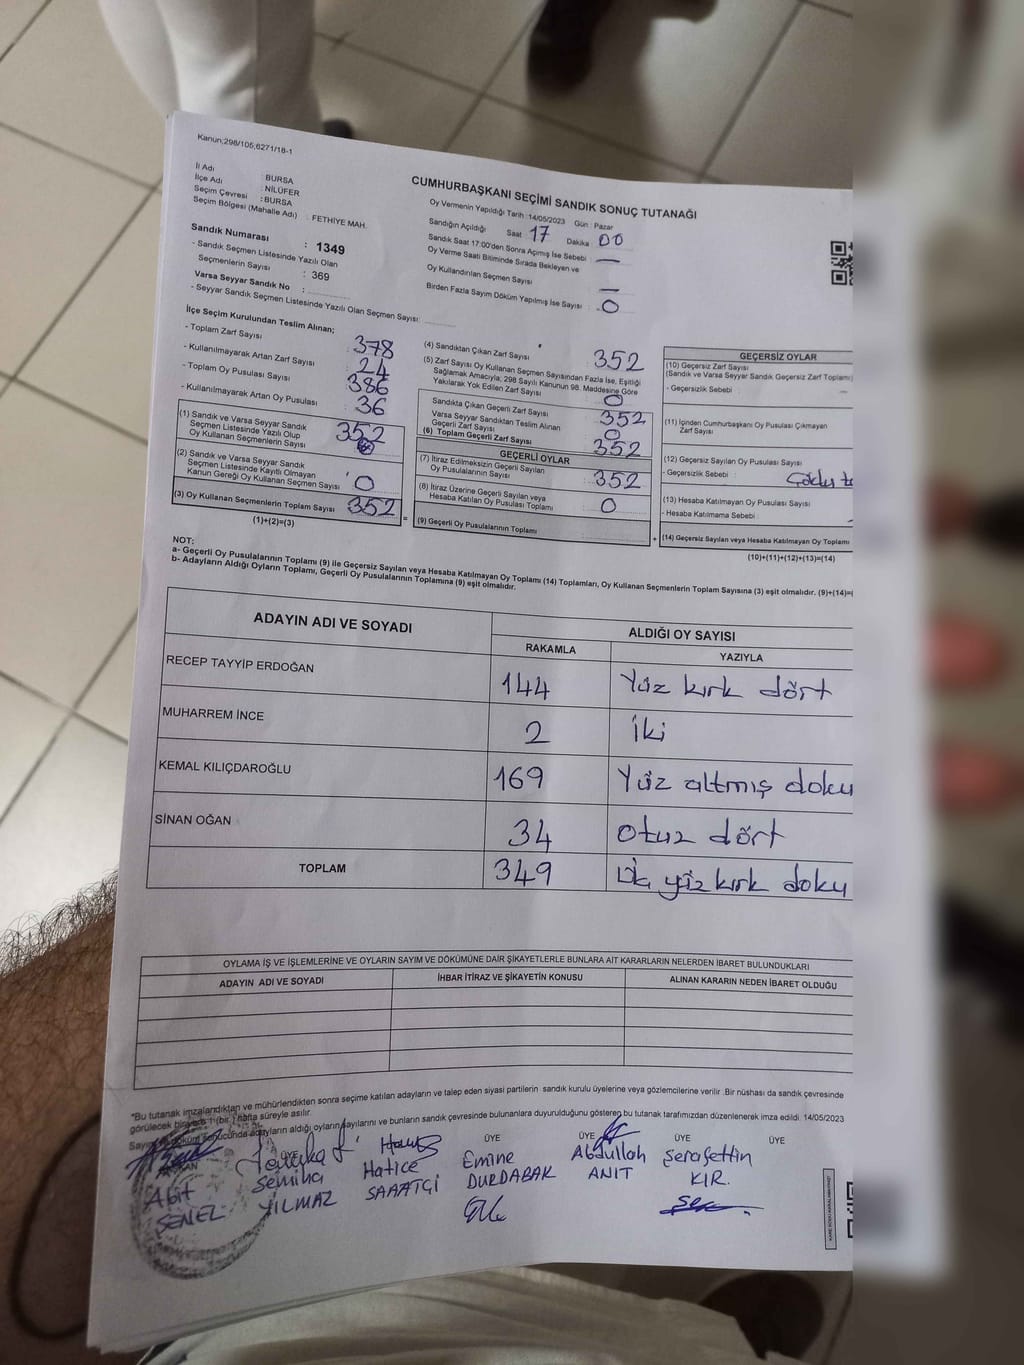 Kanun;298/105;6271/18-1
İl Adı : BURSA
İlçe Adı : NİLÜFER
Seçim Çevresi : BURSA
Seçim Bölgesi (Mahalle Adı) : FETHİYE MAH.
Sandık Numarası : 1349
- Sandık Seçmen Listesinde Yazılı Olan
Seçmenlerin Sayısı : 369
Varsa Seyyar Sandık No :
- Seyyar Sandık Seçmen Listesinde Yazılı Olan Seçmen Sayısı:
CUMHURBAŞKANI SEÇİMİ SANDIK SONUÇ TUTANAĞI
Oy Vermenin Yapıldığı Tarih :14/05/2023 Gün : Pazar
Sandığın Açıldığı Saat 17 Dakika 00
Sandık Saat 17:00'den Sonra Açımış İse Sebebi : —
Oy Verme Saati Bitiminde Sırada Bekleyen ve
Oy Kullandırılan Seçmen Sayısı —
Birden Fazla Sayım Döküm Yapılmış İse Sayısı : 0
İlçe Seçim Kurulundan Teslim Alınan;
- Toplam Zarf Sayısı : 378
- Kullanılmayarak Artan Zarf Sayısı : 24
- Toplam Oy Pusulası Sayısı : 386
- Kullanılmayarak Artan Oy Pusulası : 36
(1) Sandık ve Varsa Seyyar Sandık
Seçmen Listesinde Yazılı Olup
Oy Kullanan Seçmenlerin Sayısı : 352
(2) Sandık ve Varsa Seyyar Sandık
Seçmen Listesinde Kayıtlı Olmayan
Kanun Gereği Oy Kullanan Seçmen Sayısı : 0
(3) Oy Kullanan Seçmenlerin Toplam Sayısı : 352
(1)+(2)=(3)
=
(4) Sandıktan Çıkan Zarf Sayısı : 352
(5) Zarf Sayısı Oy Kullanan Seçmen Sayısından Fazla İse, Eşitliği
Sağlamak Amacıyla, 298 Sayılı Kanunun 98. Maddesine Göre
Yakılarak Yok Edilen Zarf Sayısı : 0
Sandıkta Çıkan Geçerli Zarf Sayısı : 352
Varsa Seyyar Sandıktan Teslim Alınan
Geçerli Zarf Sayısı : 0
(6) Toplam Geçerli Zarf Sayısı : 352
GEÇERLİ OYLAR
(7) İtiraz Edilmeksizin Geçerli Sayılan
Oy Pusulalarının Sayısı : 352
(8) İtiraz Üzerine Geçerli Sayılan veya
Hesaba Katılan Oy Pusulası Toplamı : 0
(9) Geçerli Oy Pusulalarının Toplamı :
+
GEÇERSİZ OYLAR
(10) Geçersiz Zarf Sayısı
(Sandık ve Varsa Seyyar Sandık Geçersiz Zarf Toplamı)
- Geçersizlik Sebebi : —
(11) İçinden Cumhurbaşkanı Oy Pusulası Çıkmayan
Zarf Sayısı
(12) Geçersiz Sayılan Oy Pusulası Sayısı
- Geçersizlik Sebebi :
(13) Hesaba Katılmayan Oy Pusulası Sayısı
- Hesaba Katılmama Sebebi :
(14) Geçersiz Sayılan veya Hesaba Katılmayan Oy Toplamı
(10)+(11)+(12)+(13)=(14)
NOT:
a- Geçerli Oy Pusulalarının Toplamı (9) ile Geçersiz Sayılan veya Hesaba Katılmayan Oy Toplamı (14) Toplamları, Oy Kullanan Seçmenlerin Toplam Sayısına (3) eşit olmalıdır. (9)+(14)=(
b- Adayların Aldığı Oyların Toplamı, Geçerli Oy Pusulalarının Toplamına (9) eşit olmalıdır.
ADAYIN ADI VE SOYADI
ALDIĞI OY SAYISI
RAKAMLA YAZIYLA
RECEP TAYYİP ERDOĞAN 144 Yüz kırk dört
MUHARREM İNCE 2 İki
KEMAL KILIÇDAROĞLU 169 Yüz altmış doku
SİNAN OĞAN 34 Otuz dört
TOPLAM 349 Üç yüz kırk doku
OYLAMA İŞ VE İŞLEMLERİNE VE OYLARIN SAYIM VE DÖKÜMÜNE DAİR ŞİKAYETLERLE BUNLARA AİT KARARLARIN NELERDEN İBARET BULUNDUKLARI
ADAYIN ADI VE SOYADI İHBAR İTİRAZ VE ŞİKAYETİN KONUSU ALINAN KARARIN NEDEN İBARET OLDUĞU
*Bu tutanak imzalandıktan ve mühürlendikten sonra seçime katılan adayların ve talep eden siyasi partilerin sandık kurulu üyelerine veya gözlemcilerine verilir. Bir nüshası da sandık çevresinde
görülecek bir yere 1 (bir ) hafta süreyle asılır.
Sayım ve döküm sonucunda adayların aldığı oyların sayılarını ve bunların sandık çevresinde bulunanlara duyurulduğunu gösteren bu tutanak tarafımızdan düzenlenerek imza edildi. 14/05/2023
ÜYE ÜYE ÜYE ÜYE ÜYE
Abit ŞENEL
Semiha YILMAZ
Hatice SAAATÇİ
Emine DURDABAK
Abdullah ANIT
Şerafettin KIR.